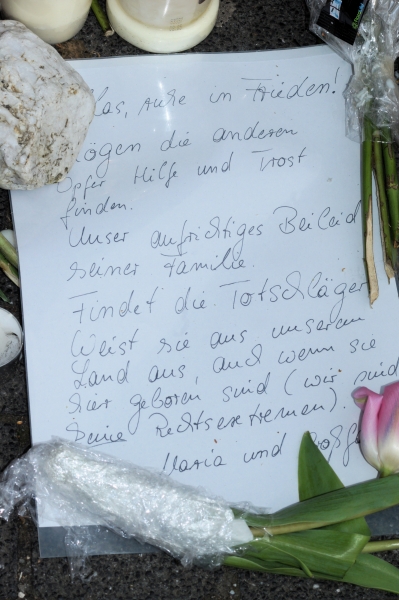 las, ruhe in Frieden!
ögen die anderen
Opfer Hilfe und Trost
finden.
Unser aufrichtiges Beileid
seiner Familie.
Findet die Totschläger
Weist sie aus unserem
Land aus, auch wenn sie
hier geboren sind (wir sind
keine Rechtsextremen).
Maria und